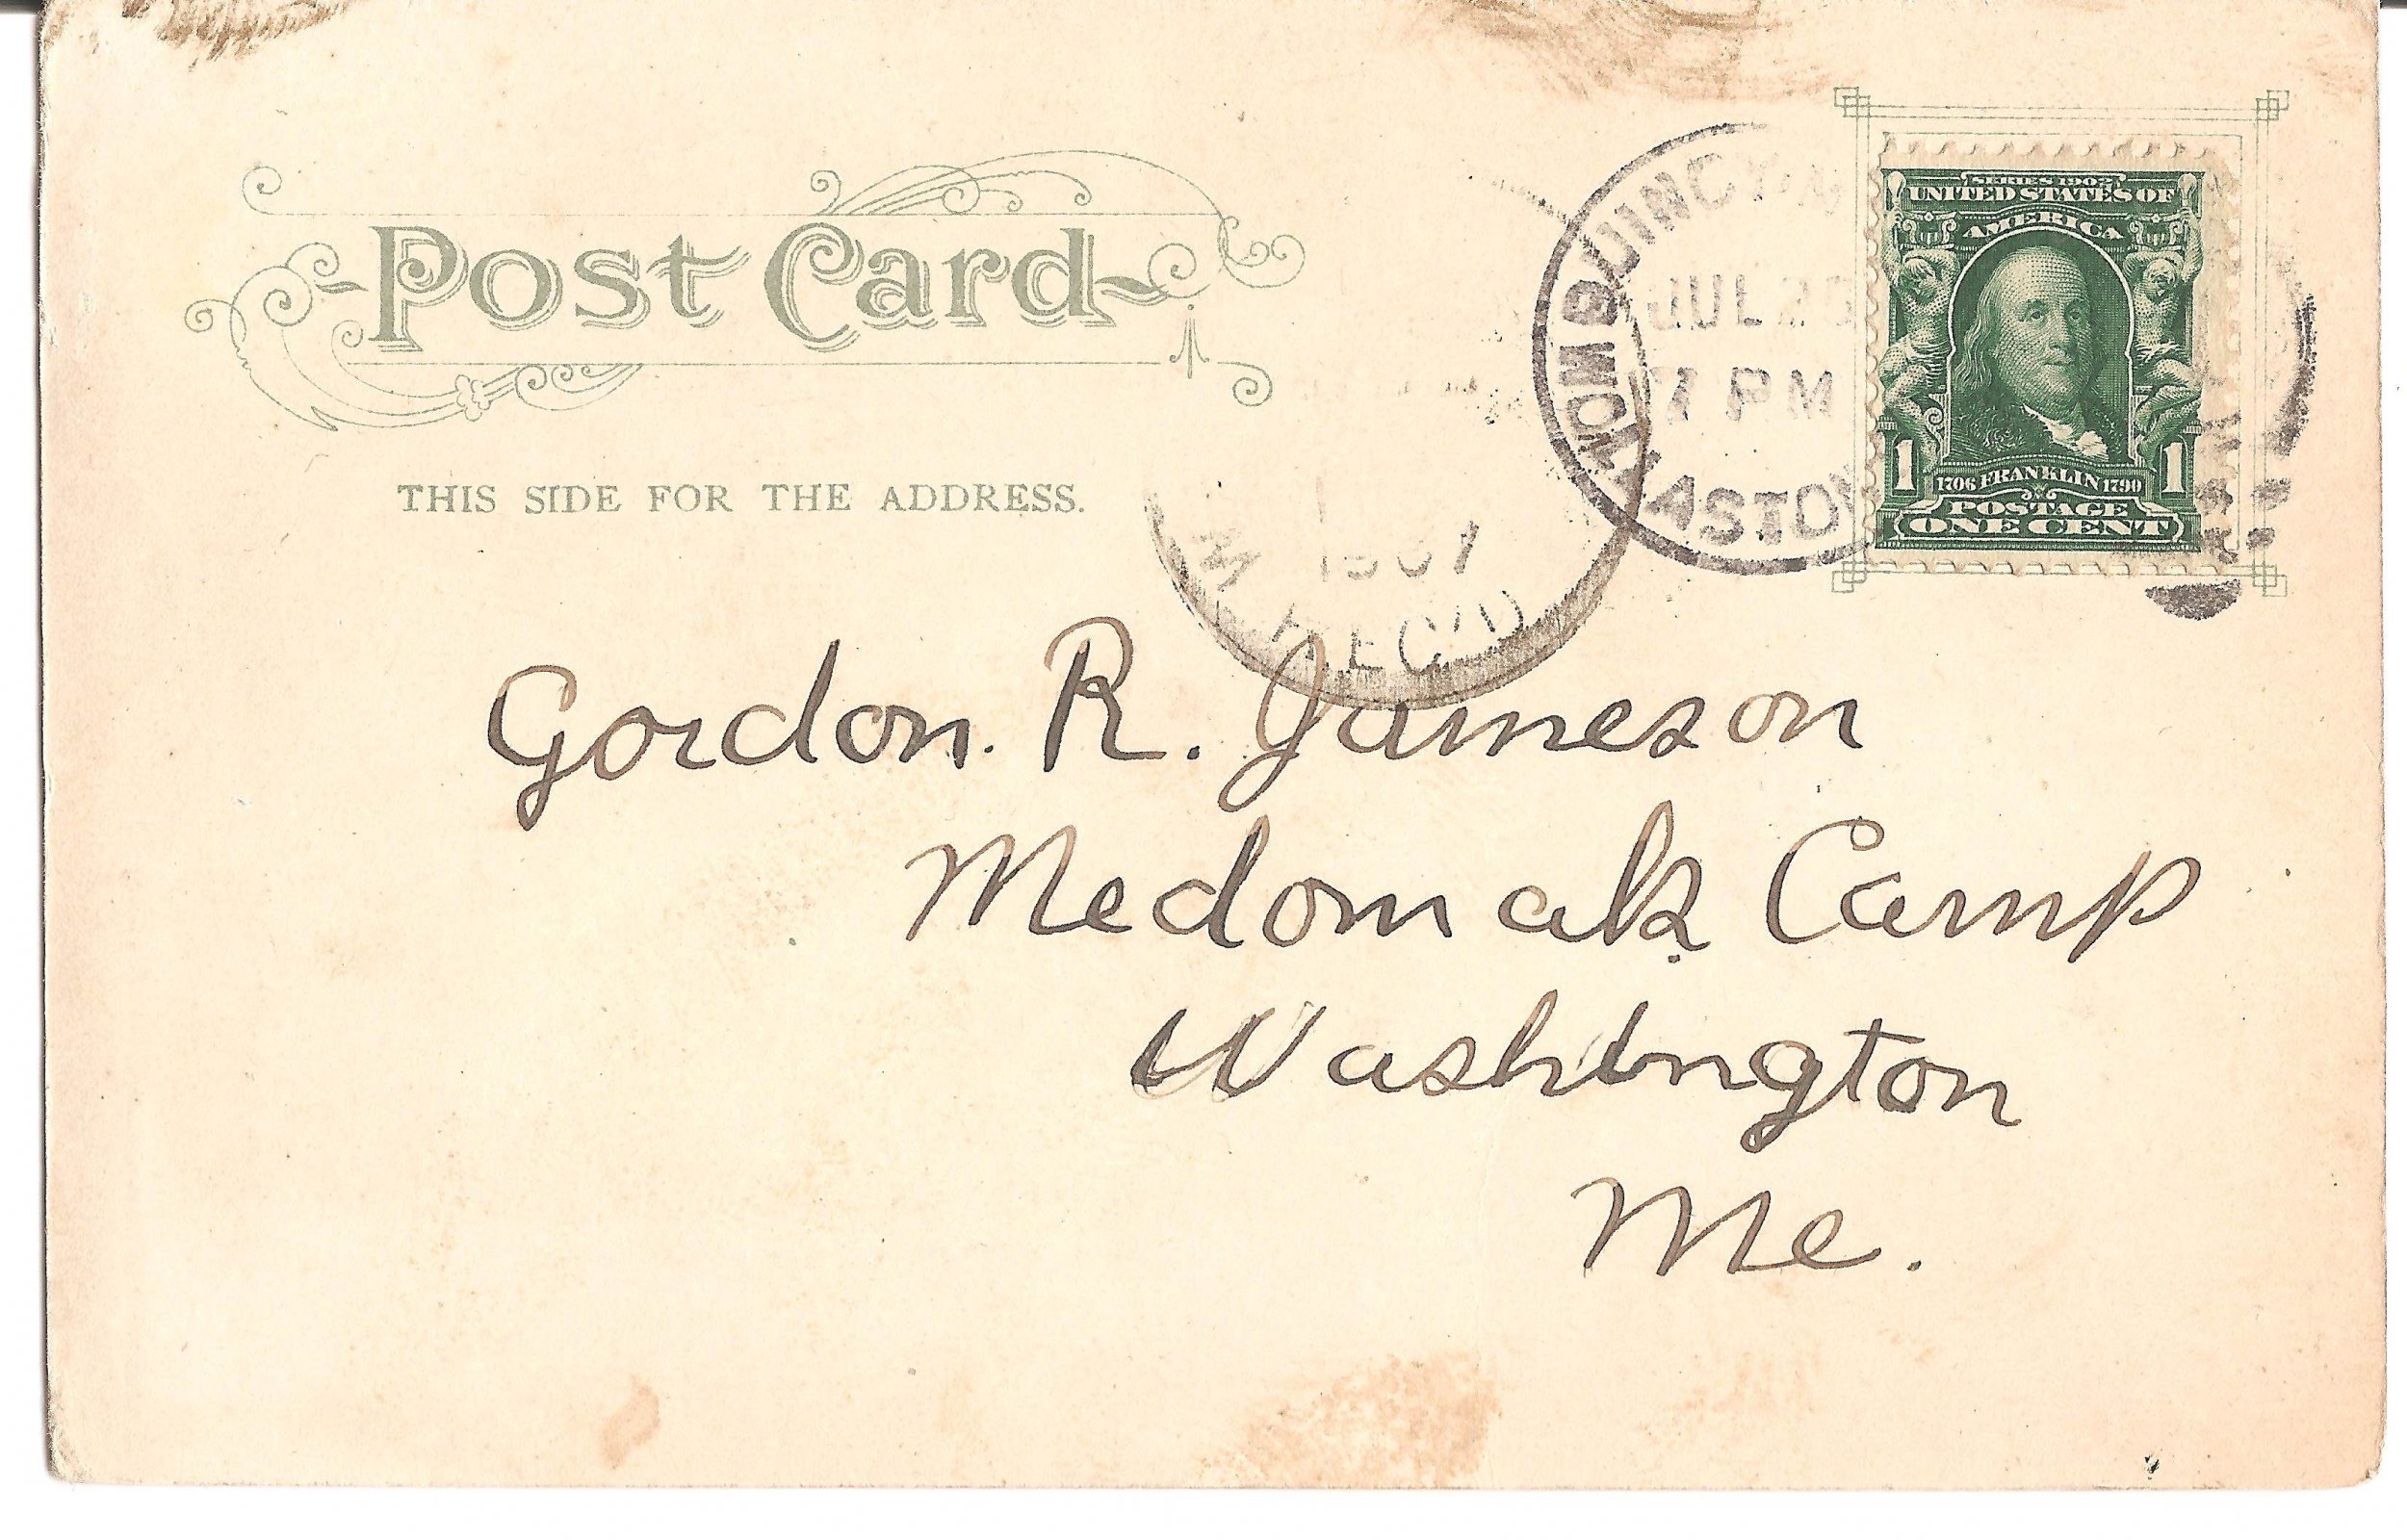 Post Card
THIS SIDE FOR THE ADDRESS.
JUL 23
7 PM
1907
REC'D
SERIES 1902
UNITED STATES OF
AMERICA
1 1706 FRANKLIN 1790 1
POSTAGE
ONE CENT
Gordon. R. Jameson
Medomak Camp
Washington
Me.